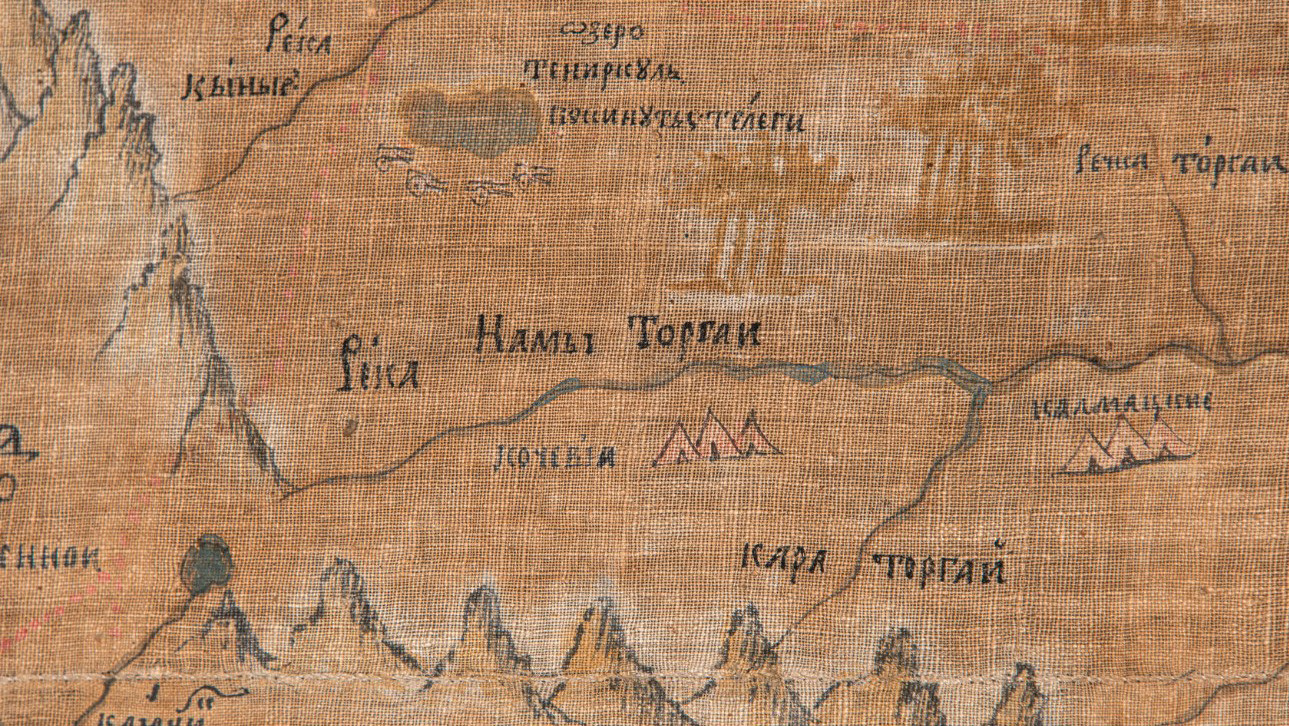 Река
Кыныр
ѡзеро
тениркуль
покинутыѣ телеги
Речка торгаи
Река
Намы Торгаи
калмацкие
кочевїа
кара торгай